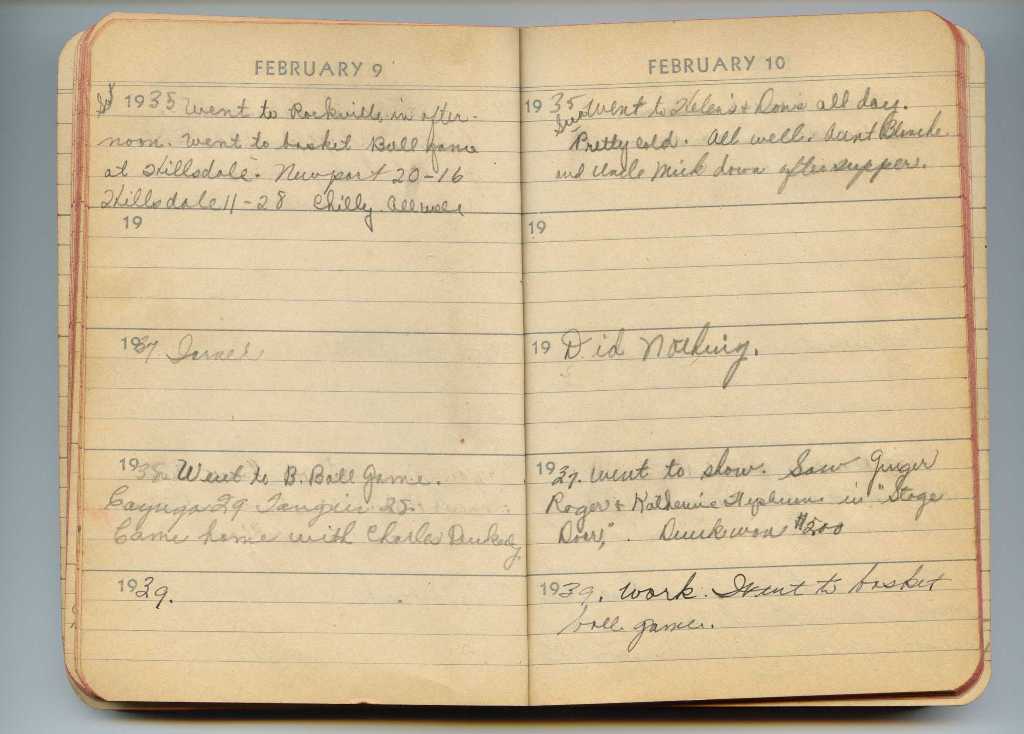 FEBRUARY 9
Sat 1935 Went to Rockville in after-
noon. Went to basket Ball game
at Hillsdale. Newport 20-16
Hillsdale 11-28 Chilly. All well
19
1937
1938 Went to B. Ball Game.
Cayuga 29 25.
Came home with Charles
1939.
FEBRUARY 10
1935 Went to Helen's & Don's all day.
Sun Pretty cold. All well. Aunt Blanche
and Uncle Mick down after supper.
19
19 Did Nothing.
1937. Went to show. Saw Ginger
Roger & Katherine Hepburn in "Stage
Door," . won $2.00
1939. Work. Went to basket
ball game.